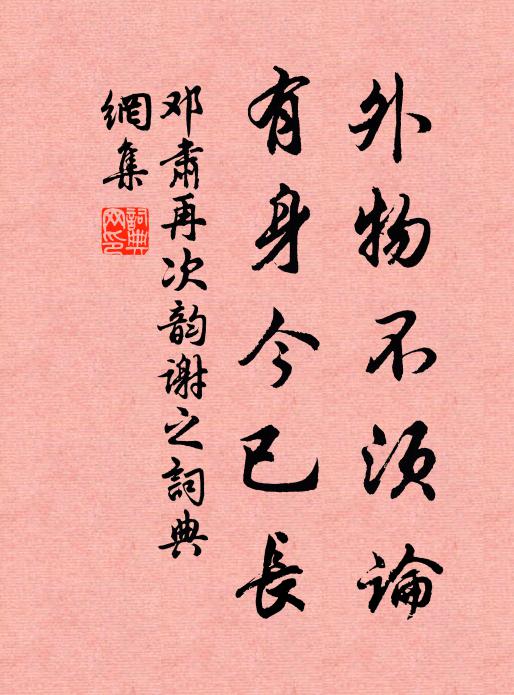 外物不须論
有身今已長
邓肅再次韵谢之詞典
網集
詞典網印